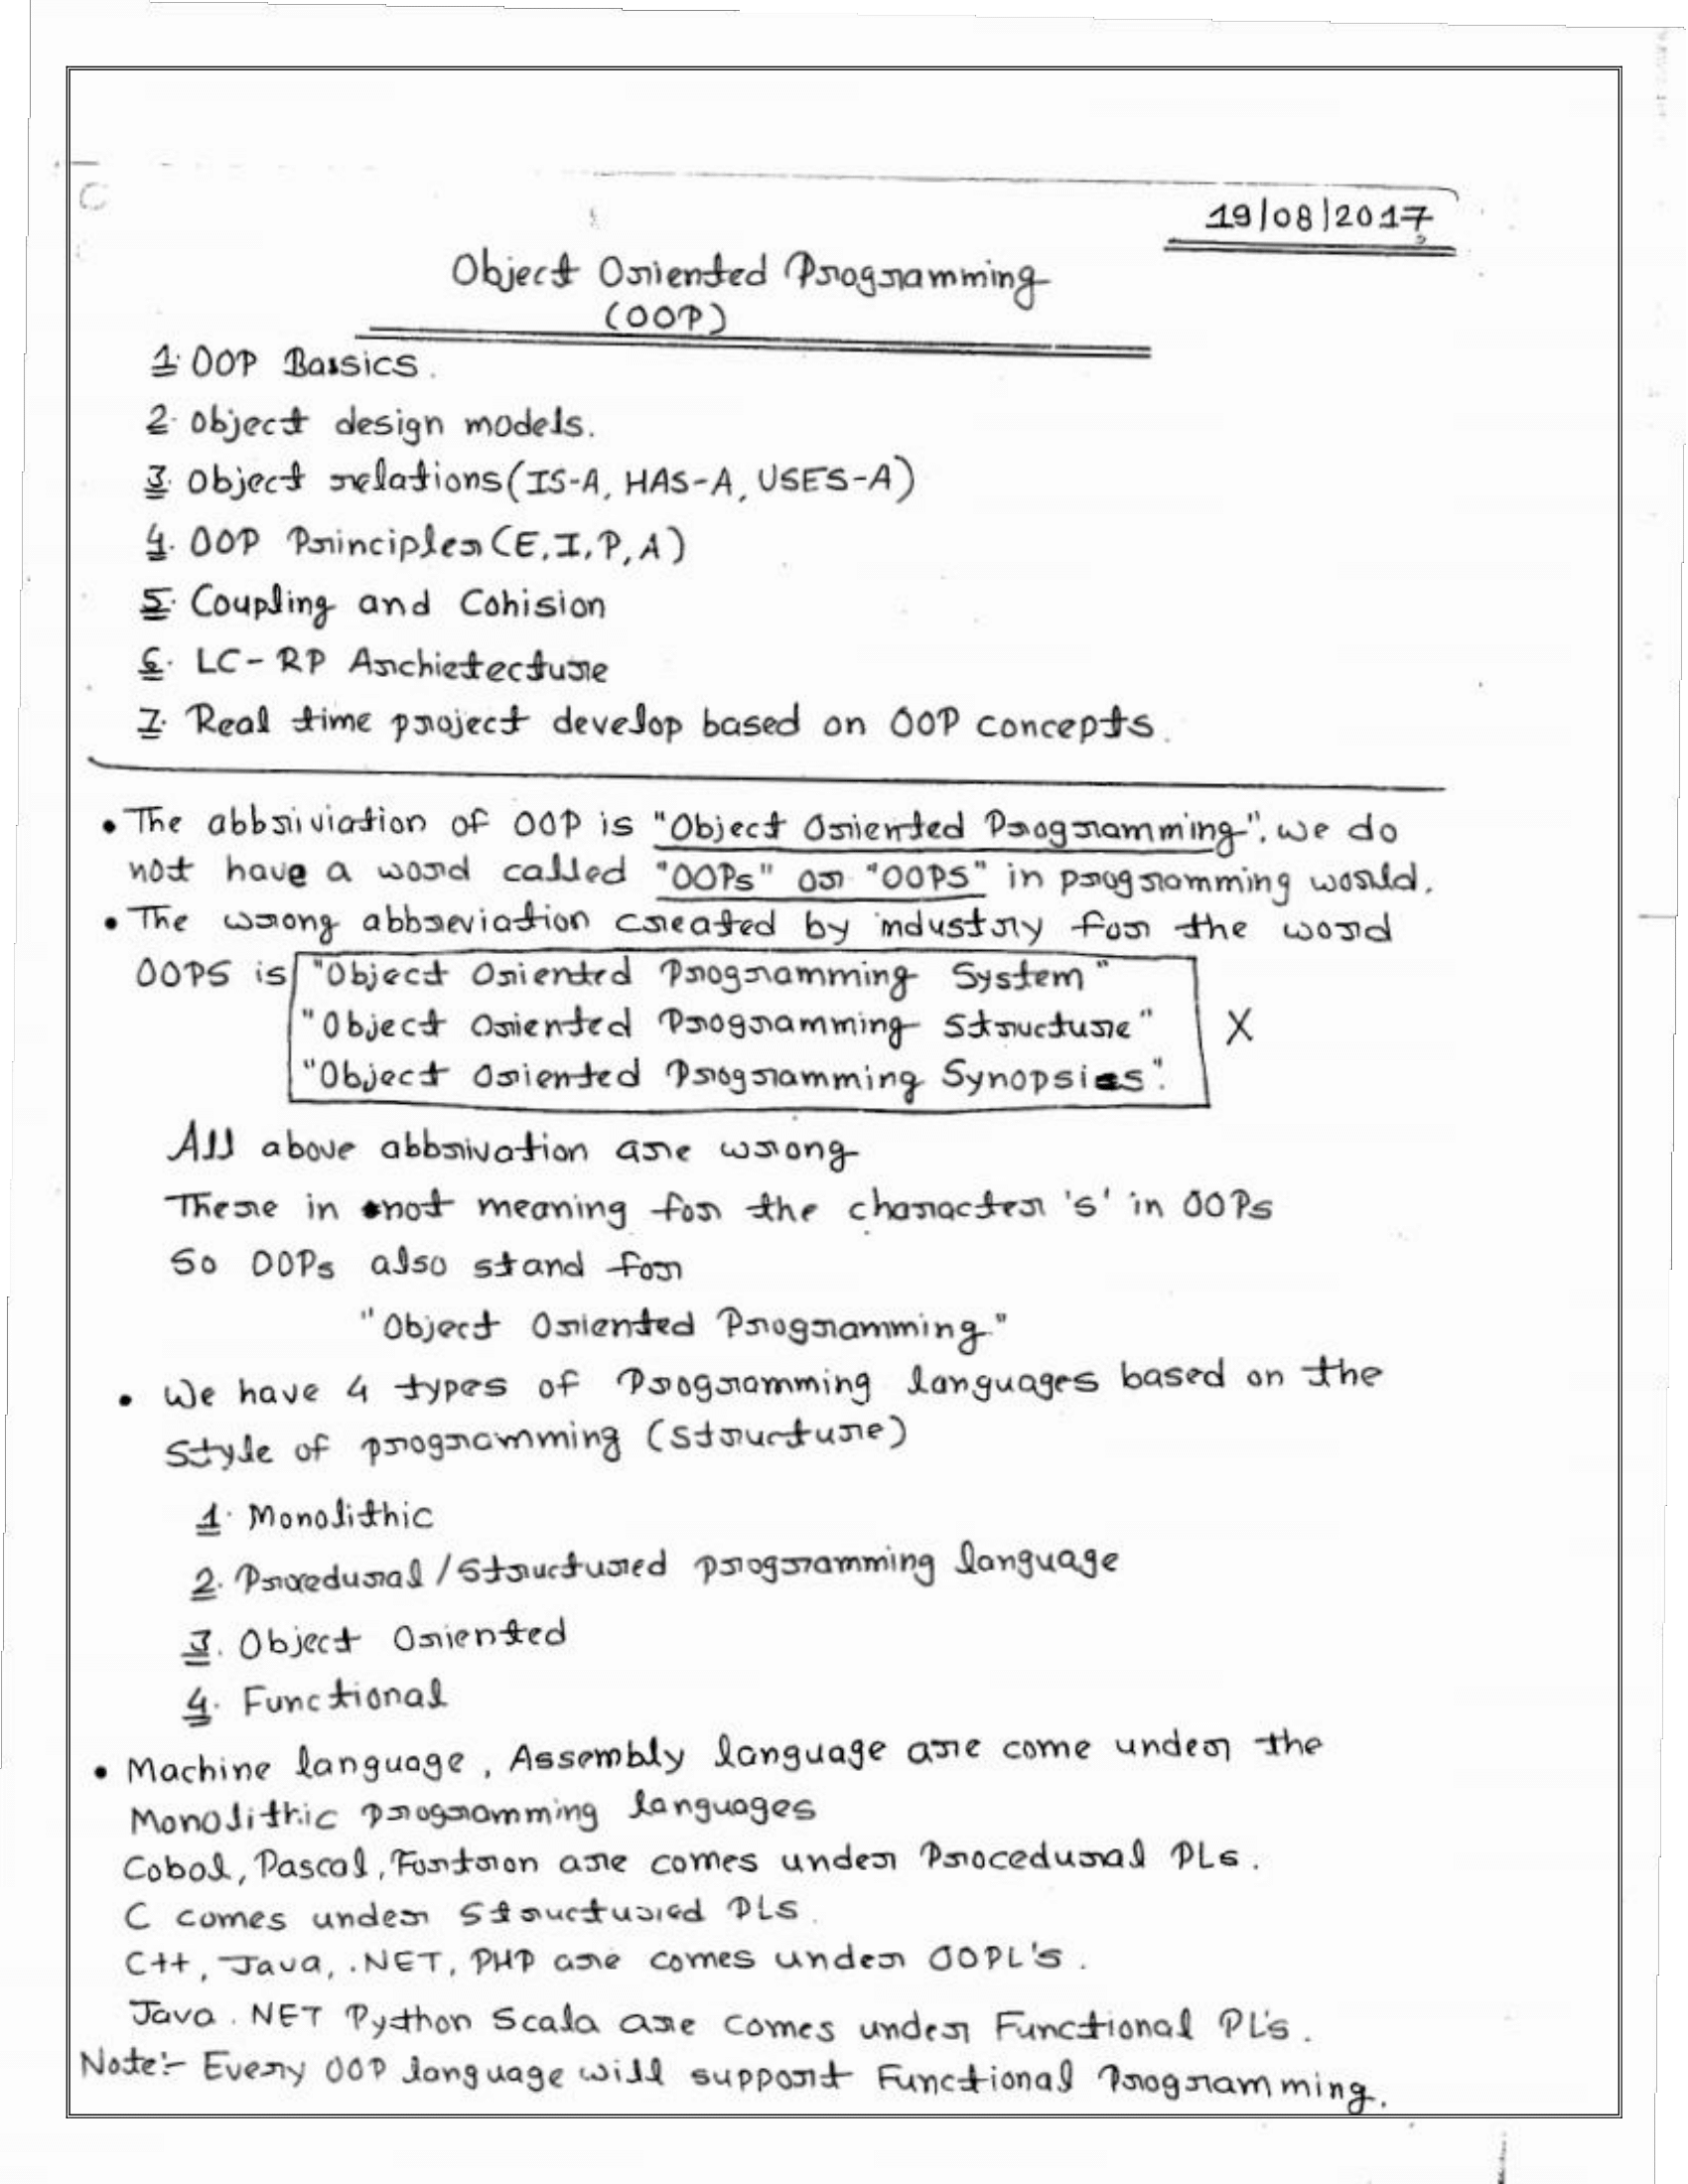 19/08/2017
Object Oriented Programming
(OOP)
1. OOP Bassics.
2. Object design models.
3. Object relations (IS-A, HAS-A, USES-A)
4. OOP Principles (E, I, P, A)
5. Coupling and Cohision
6. LC-RP Archietecture
7. Real time project develop based on OOP concepts.
• The abbriviation of OOP is "Object Oriented Programming". we do
not have a word called "OOPs" or "OOPS" in programming world.
• The wrong abbreviation created by industry for the word
OOPS is "Object Oriented Programming System"
"Object Oriented Programming Structure" X
"Object Oriented Programming Synopsies".
All above abbrivation are wrong
There in not meaning for the character 's' in OOPs
So OOPs also stand for
"Object Oriented Programming"
• We have 4 types of Programming languages based on the
Style of programming (structure)
1. Monolithic
2. Procedural / Structured programming language
3. Object Oriented
4. Functional
• Machine language, Assembly language are come under the
Monolithic programming languages
Cobol, Pascal, Fortron are comes under Procedural PLs.
C comes under Structured PLS.
C++, Java, .NET, PHP are comes under OOPL's.
Java .NET Python Scala are comes under Functional PL's.
Note:- Every OOP language will support Functional Programming.